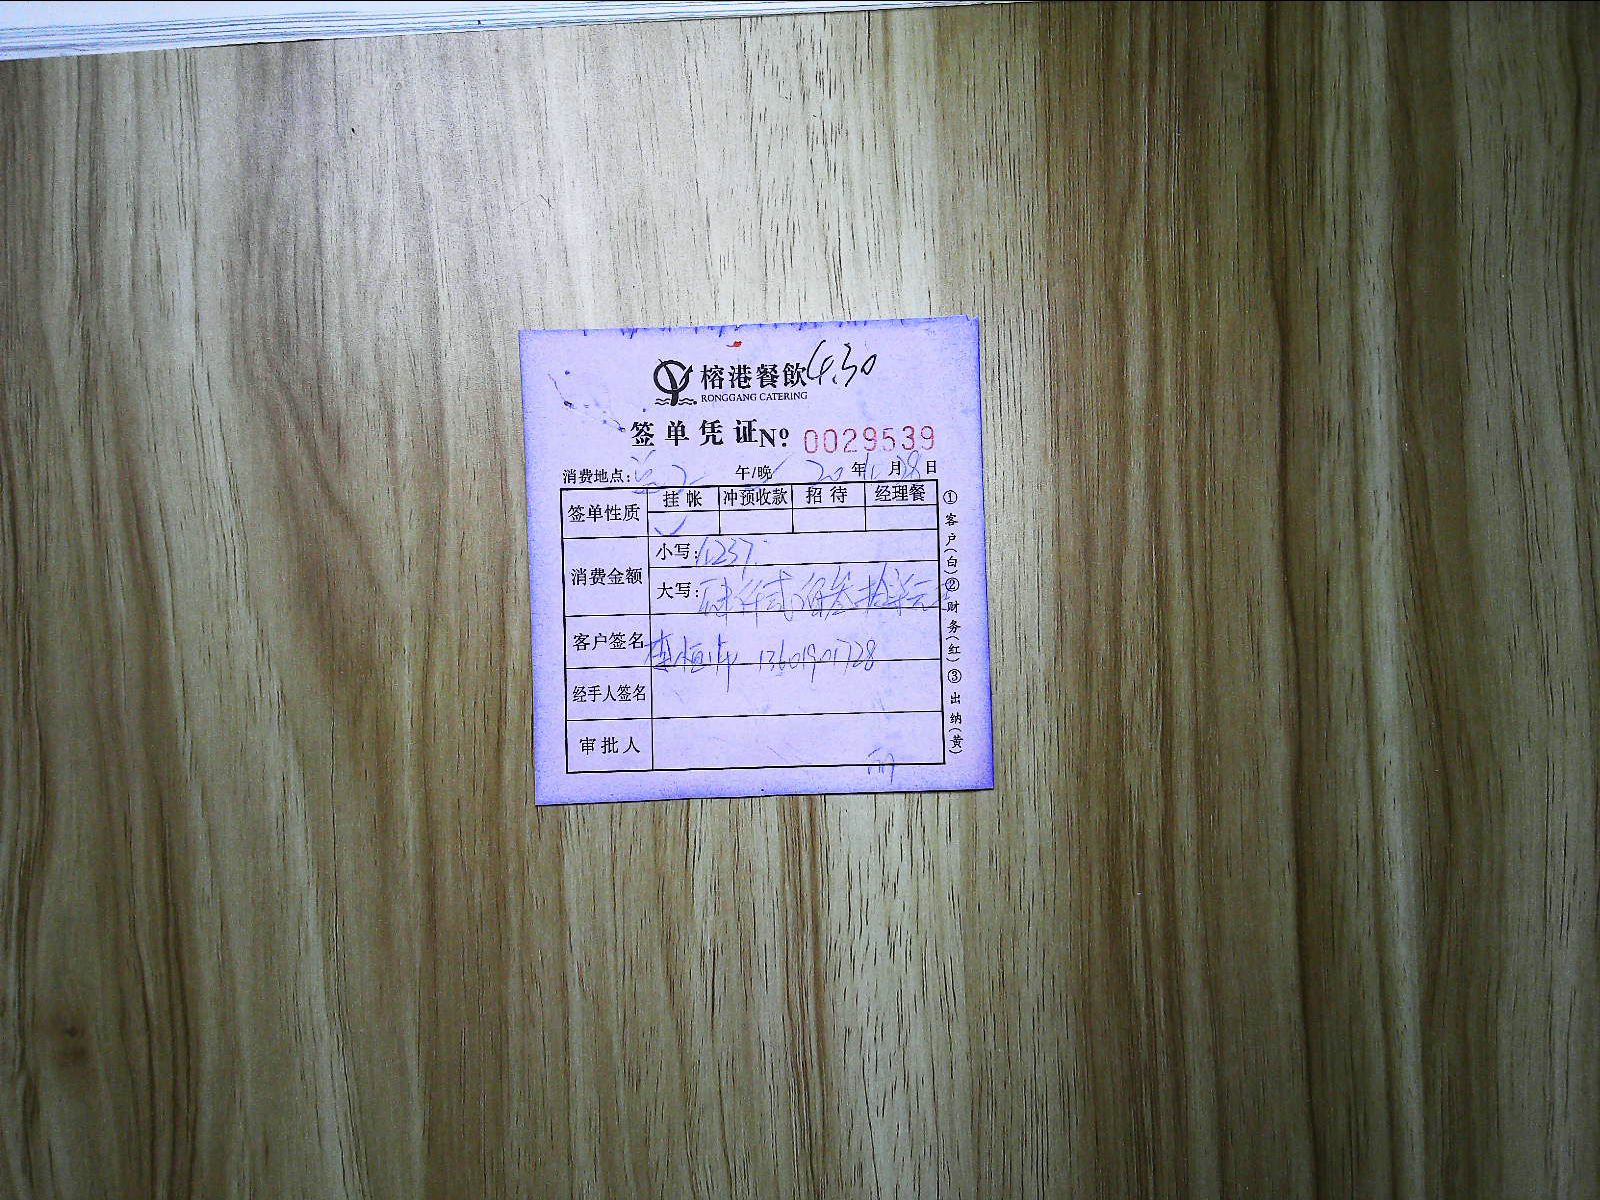 榕港餐飲 4.30
RONGGANG CATERING
签单凭证 Nº 0029539
消费地点: 午/晚 20 年 11 月 28 日
签单性质 挂帐 冲预收款 招待 经理餐
✓
消费金额 小写: 1237.
大写: 仟贰佰叁拾柒元
客户签名 13601901728
经手人签名
审批人
①客户(白)②财务(红)③出纳(黄)